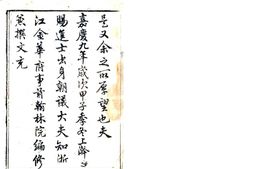 是又余之所厚望也夫
嘉慶九年歲次甲子季冬上澣
賜進士出身朝議大夫知浙
江金華府事前翰林院編修
蕉撰文充